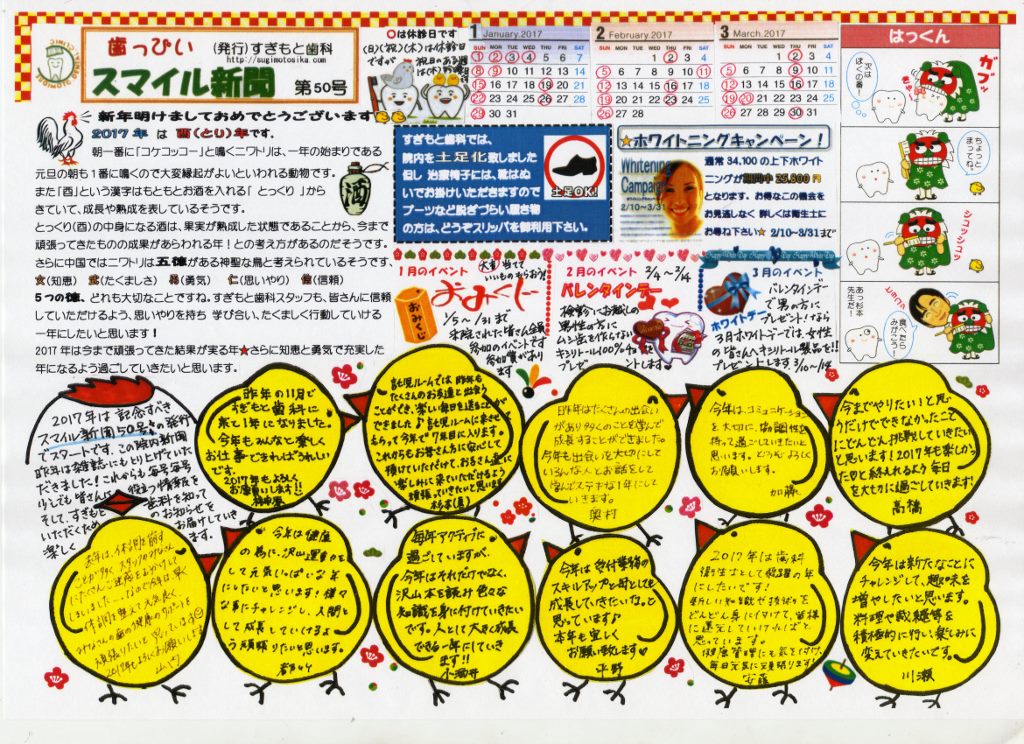 歯っぴい
(発行)すぎもと歯科
http://sugimotosika.com
スマイル新聞 第50号
新年明けましておめでとうございます
2017年 は 酉(とり)年です。
朝一番に「コケコッコー」と鳴くニワトリは、一年の始まりである
元旦の朝も1番に鳴くので大変縁起がよいといわれる動物です。
また「酉」という漢字はもともとお酒を入れる「 とっくり 」から
きていて、成長や熟成を表しているそうです。
とっくり(酉)の中身になる酒は、果実が熟成した状態であることから、今まで
頑張ってきたものの成果があらわれる年!との考え方があるのだそうです。
さらに中国ではニワトリは五徳がある神聖な鳥と考えられているそうです。
(知恵) (たくましさ) (勇気) 仁(思いやり) 信(信頼)
5つの徳、どれも大切なことですね。すぎもと歯科スタッフも、皆さんに信頼
していただけるよう、思いやりを持ち 学び合い、たくましく行動していける
一年にしたいと思います!
2017年は今まで頑張ってきた結果が実る年★さらに知恵と勇気で充実した
年になるよう過ごしていきたいと思います。
○は休診日です
(日)(祝)(木)は休診日
ですが
祝日のある週
1 January.2017
SUN MON TUE WED THU FRI SAT
1 2 3 4 5 6 7
8 9 10 11 12 13 14
15 16 17 18 19 20 21
22 23 24 25 26 27 28
29 30 31
2 February.2017
SUN MON TUE WED THU FRI SAT
1 2 3 4
5 6 7 8 9 10 11
12 13 14 15 16 17 18
19 20 21 22 23 24 25
26 27 28
3 March.2017
SUN MON TUE WED THU FRI SAT
1 2 3 4
5 6 7 8 9 10 11
12 13 14 15 16 17 18
19 20 21 22 23 24 25
26 27 28 29 30 31
すぎもと歯科では、
院内を土足化致しました
但し 治療椅子には、靴はぬ
いでお掛けいただきますので
ブーツなど脱ぎづらい履き物
の方は、どうぞスリッパを御利用下さい。
土足OK!
★ホワイトニングキャンペーン!
Whitening
Campaign
2/10~3/31
通常 34.100の上下ホワイト
ニングが期間中 25,800円
となります。お得なこの機会を
お見逃しなく 詳しくは衛生士に
お尋ね下さい★ 2/10~3/31まで
1月のイベント
大吉 当てて
いいものもらおう!!
おみくじ
おみくじ
1/5~/31まで
来院された皆さん全員
参加のイベントです
参加賞があり
ます
2月のイベント 2/4~2/14
バレンタインデー
検診にお越しの
男性の方に
キシリトール100%チョコを
プレゼントします
3月のイベント
ホワイトデー
バレンタインデー
で男の方に
プレゼント!なら
3月ホワイトデーでは、女性
の皆さんへキシリトール製品を!!
プレゼントします。3/10~14
はっくん
ガブッ
次は
ぼくの番!
ちょっと
まっててね。
シコシコッ
あっ杉本
先生だ!
食べたら
みがこう!
2017年は記念すべき
スマイル新聞50号の発行
でスタートです。この院内新聞
昨年は雑誌にもとり上げていた
だきました!これからも毎号毎号
少しでも皆さんに役立つ情報を
そして、すぎもと歯科を知って
いただくためのお知らせを
楽しくお届けしていきます
昨年の11月で
すぎもと歯科に
来て1年になりました。
今年もみんなと楽しく
お仕事できればうれしい
です。
2017年もよろしく
お願いします!!
託児ルームでは昨年も
たくさんのお友達と出会う
ことができ、楽しい毎日を送ることが
できました♪託児ルームに来させて
もらって今年で7年目に入ります。
これからもお母さん方に安心して
預けていただけて、お子さん達に
楽しみに来ていただけるよう
頑張っていきたいと思います
昨年はたくさんの出会い
があり多くのことを学んで
成長することができました。
今年も出会いを大切にして
いろんな人とお話をして
学んでステキな1年にして
いきます。
奥村
今年は、コミュニケーション
を大切に、協調性を
持って過ごしていきたいと
思います。どうぞよろしく
お願いします。
加藤
今までやりたい!と思
うだけでできなかったこと
にどんどん挑戦していきたい
と思います!2017年も楽しかっ
た◎と終えれるよう毎日
を大切に過ごしていきます!
高橋
今年は健康
の為に、沢山運動を
して元気いっぱいな年
にしたいと思います!様々
な事にチャレンジし、人間と
して成長していけるよ
う頑張りたいと思います。
毎年アクティブに
過ごしていますが、
今年はそれだけでなく、
沢山本を読み色々な
知識を身に付けていきたい
です。人として大きく成長
できる一年にしていき
ます!!
小酒井
今年は受付業務の
スキルアップと母としても
成長していきたいな。と
思っています♪
本年も宜しく
お願い致します♡
平野
2017年は歯科
衛生士として飛躍の年
にしたいです!
新しい知識や技術を
どんどん身に付けて、皆様
に還元していければと
思っています。
健康管理にも気を付け、
毎日元気に頑張ります!
安藤
今年は新たなことに
チャレンジして、趣味を
増やしたいと思います。
料理や裁縫等を
積極的に行い、楽しみに
変えていきたいです。
川瀬